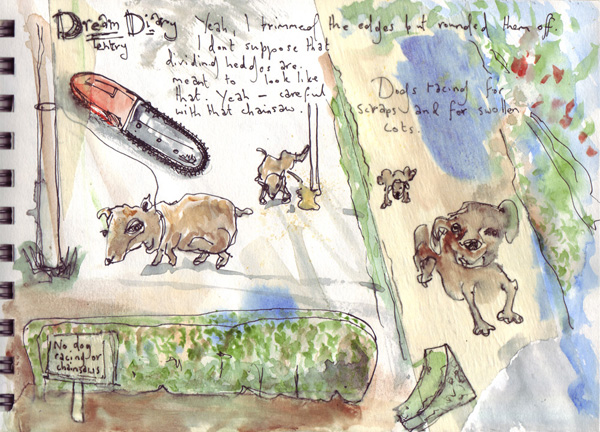 Dream Diary
Yeah, I trimmed the edges but rounded them off.
I dont suppose that
dividing hedges are
meant to look like
that. Yeah – careful
with that chainsaw.
racing for
scraps and for swollen
No dog
racing or
chainsaws